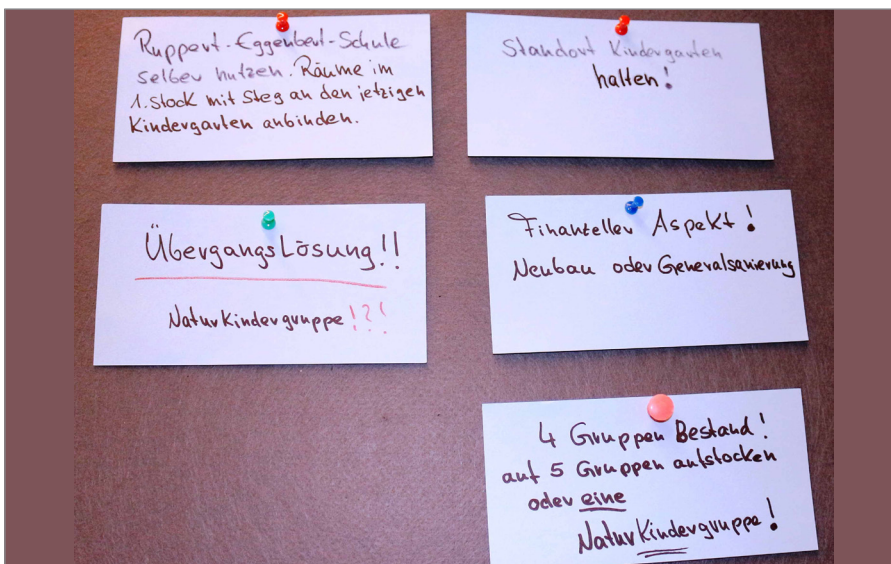 Ruppert-Eggenbert-Schule
selber nutzen. Räume im
1. Stock mit Steg an den jetzigen
Kindergarten anbinden.
Standort Kindergarten
halten!
ÜbergangsLösung!!
NaturKindergruppe!?!
Finanzeller Aspekt!
Neubau oder Generalsanierung
4 Gruppen Bestand!
auf 5 Gruppen aufstocken
oder eine
NaturKindergruppe!